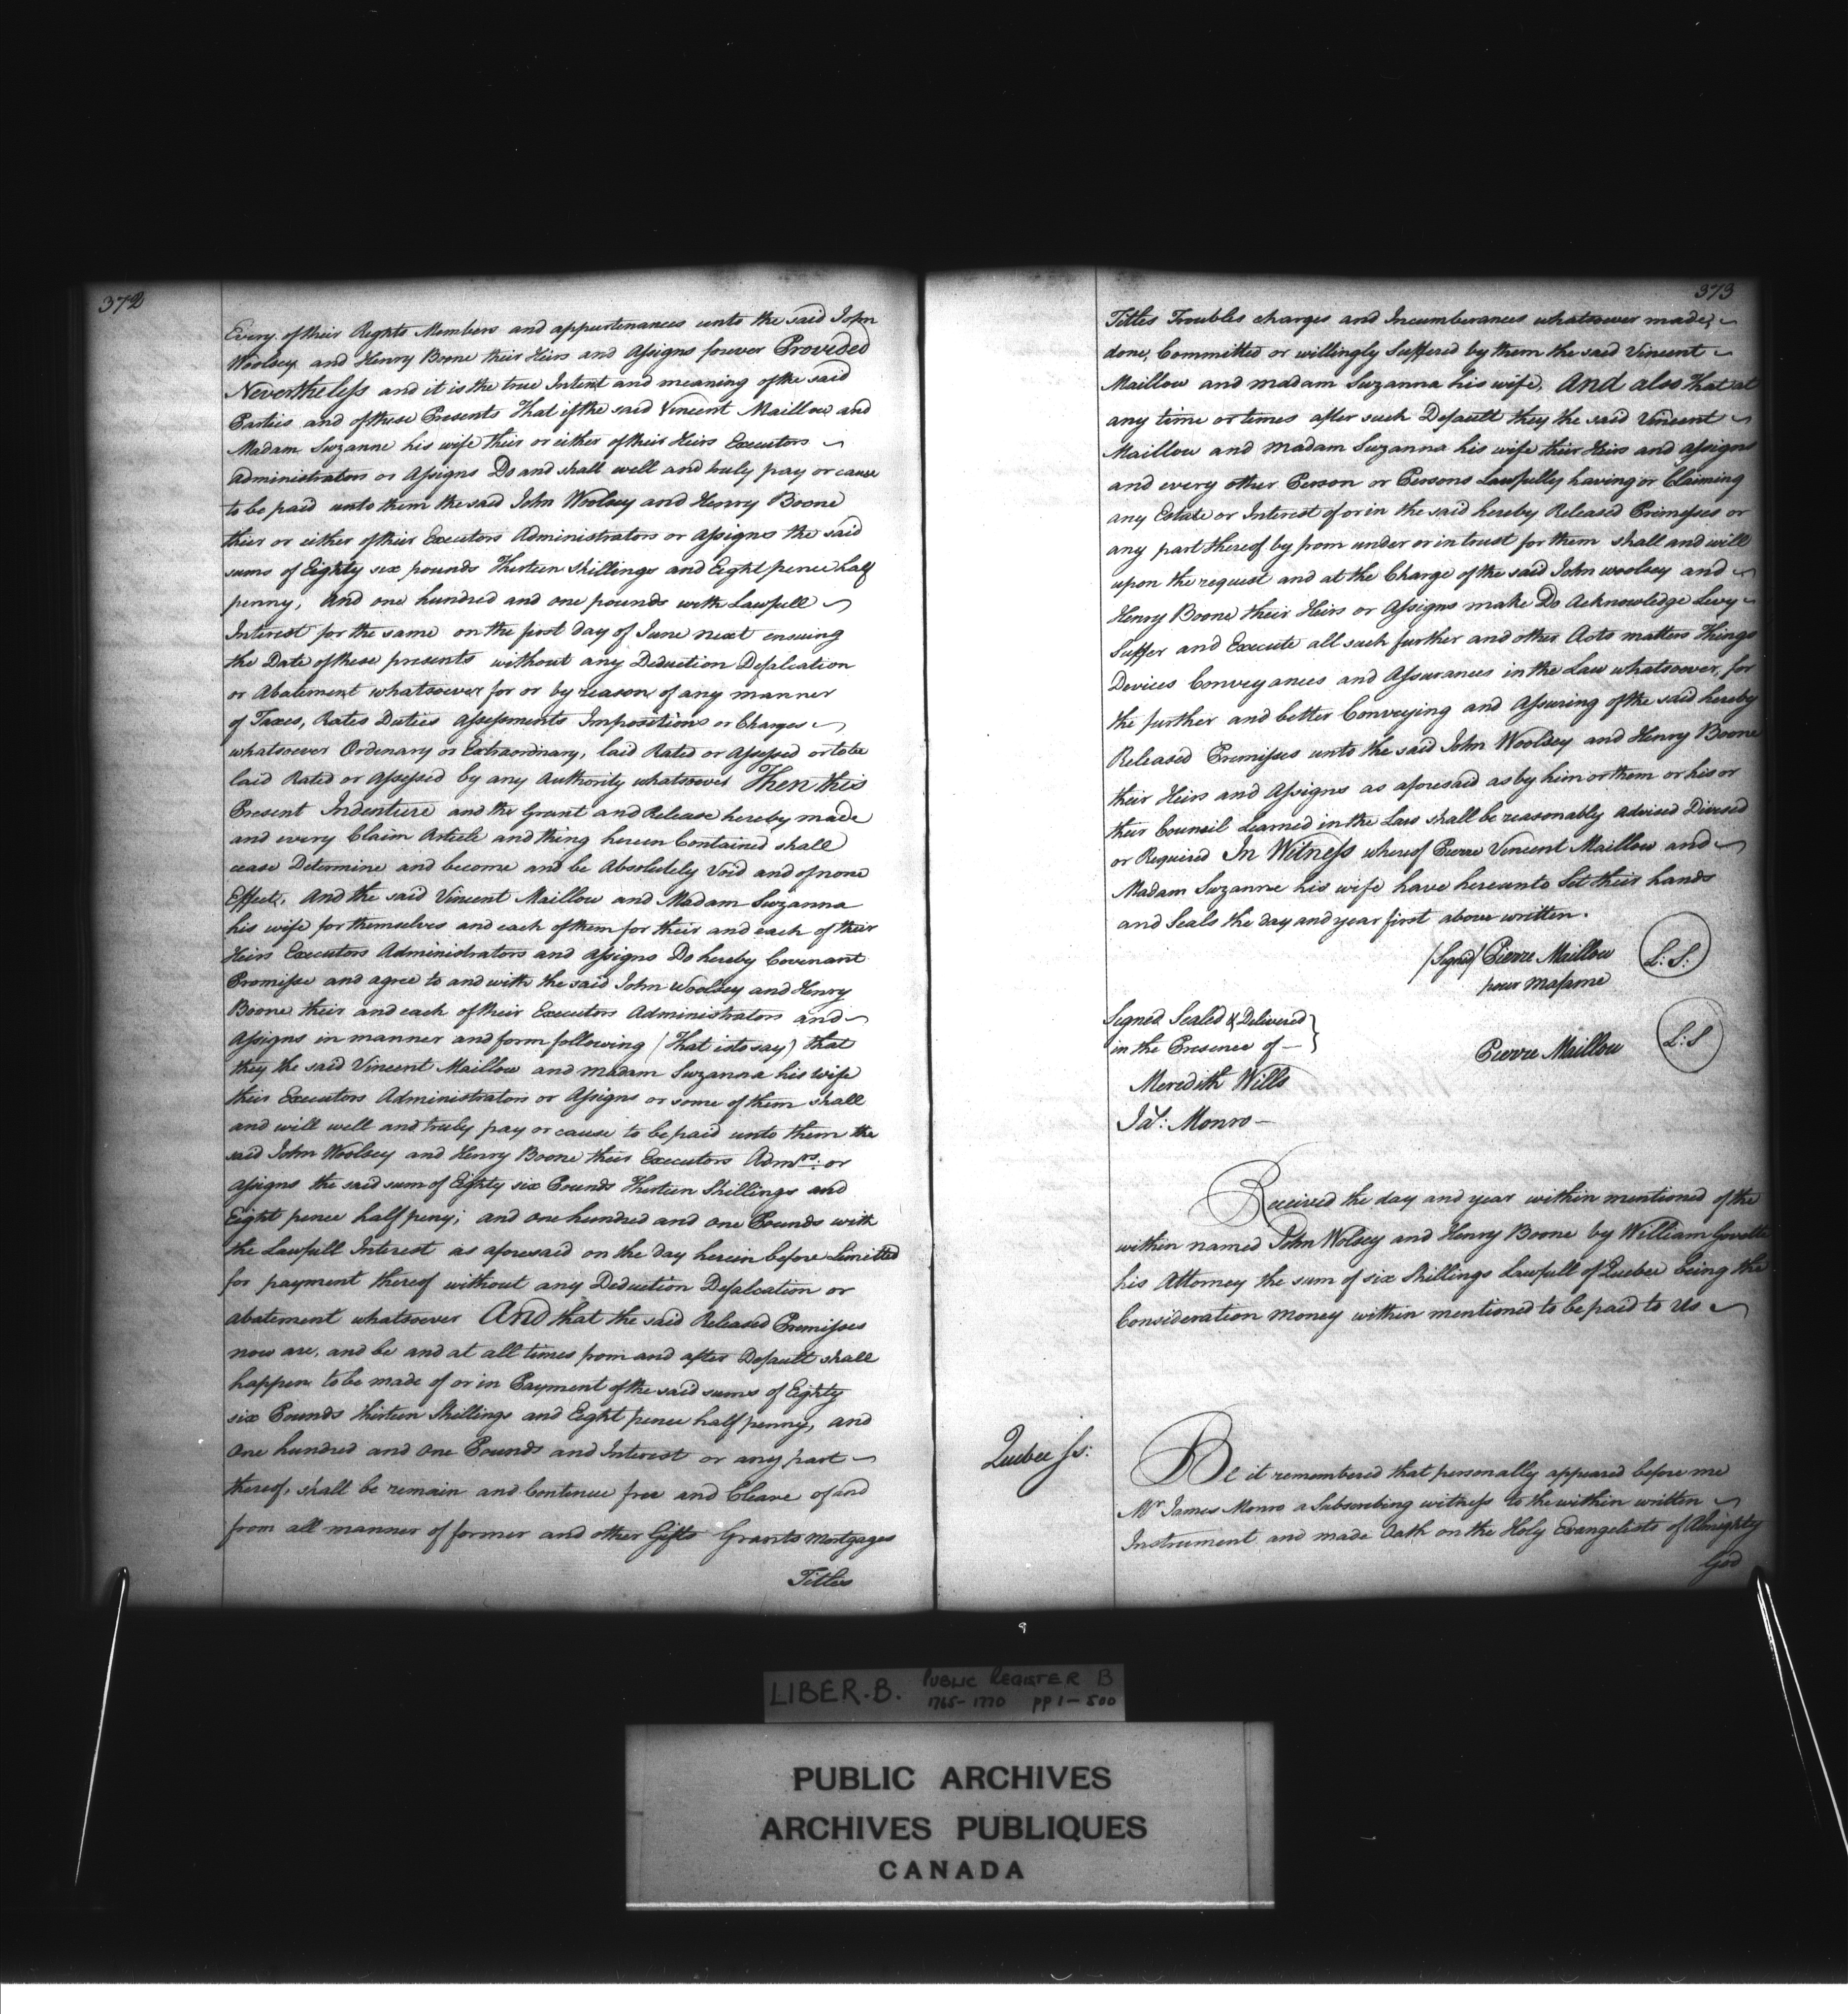 372
Every of their Rights Members and appurtenances unto the said John
Woolsey and Henry Boone their Heirs and Assigns forever Provided
Nevertheless and it is the true Intent and meaning of the said
Parties and of these Presents That if the said Vincent Maillow and
Madam Suzanne his wife their or either of their Heirs Executors
Administrators or Assigns Do and shall well and truly pay or cause
to be paid unto them the said John Woolsey and Henry Boone
thier or either of thier Executors Administrators or Assigns the said
sums of Eighty six pounds Thirteen shillings and Eight pence half
penny, And one hundred and one pounds with Lawfull
Interest for the same on the first day of June next ensuing
the Date of these presents without any Deduction Defalcation
or Abatement whatsoever for or by reason of any manner
of Taxes, Rates Duties Assessments Impositions or Charges
whatsoever Ordenary or Extraordinary, laid Rated or Assessed or to be
laid Rated or Assessed by any Authority whatsoever Then this
Present Indenture and the Grant and Release hereby made
and every Claim Article and thing herein Contained shall
cease Determine and become and be Absolutely Void and of none
Effect, And the said Vincent Maillow and Madam Suzanna
his wife for themselves and each of them for their and each of their
Heirs Executors Administrators and Assigns Do hereby Covenant
Promisse and agree to and with the said John Woolsey and Henry
Boone their and each of their Executors Administrators and
Assigns in manner and form following (That is to say) that
they the said Vincent Maillow and madam Suzanna his wife
their Executors Administrators or Assigns or some of them shall
and will well and truly pay or cause to be paid unto them the
said John Woolsey and Henry Boone their Executors Admrs: or
Assigns the said sum of Eighty six Pounds Thirteen Shillings and
Eight pence half peny; and one hundred and one Pounds with
the Lawfull Interest as aforesaid on the day herein before Limitted
for payment thereof without any Deduction Defalcation or
abatement whatsoever And that the said Released Premisses
now are, and be and at all times from and after Default shall
happen to be made of or in Payment of the said sums of Eighty
six Pounds thirteen Shillings and Eight pence half penny, and
One hundred and One Pounds and Interest or any part
thereof, shall be remain and Continue free and Cleare of and
from all manner of former and other Gifts Grants Mortgages
Titles
373
Titles Troubles charges and Incumberances whatsoever made,
done, Committed or willingly Suffered by them the said Vincent
Maillow and madam Suzanna his wife. And also that at
any time or times after such Default they the said Vincent
Maillow and Madam Suzanna his wife their Heirs and Assigns
and every other Person or Persons Lawfully having or Claiming
any Estate or Interest of or in the said hereby Released Premisses or
any part thereof by from under or in trust for them shall and will
upon the request and at the Charge of the said John Woolsey and
Henry Boone their Heirs or Assigns make Do Acknowledge Levy
Suffer and Execute all such further and other Acts matters Things
Devices Conveyances and Assurances in the Law whatsoever, for
the further and better Conveying and Assuring of the said hereby
Released Premisses unto the said John Woolsey and Henry Boone
their Heirs and Assigns as aforesaid as by him or them or his or
their Council Learned in the Law shall be reasonably advised Divised
or Required In Witness whereof Pierre Vincent Maillow and
Madam Suzanne his wife have hereunto Set their hands
and Seals the day and year first above written.
(Signed) Pierre Maillow L:S:
pour Mafame
Signed Sealed & Delivered
in the Presence of
Pierre Maillow L:S
Meredith Wills
Jas: Monro
Received the day and year within mentioned of the
within named John Wolsey and Henry Boone by William Govett
his Attorney the sum of six Shillings Lawfull of Quebec being the
Consideration Money within mentioned to be paid to Us
Quebec ss:
Be it remembered that personally appeared before me
Mr James Monro a Subscribing witness to the within written
Instrument and made Oath on the Holy Evangelists of Almighty
God
9
LIBER.B. PUBLIC REGISTER B
1765-1770 pp 1-500
PUBLIC ARCHIVES
ARCHIVES PUBLIQUES
CANADA